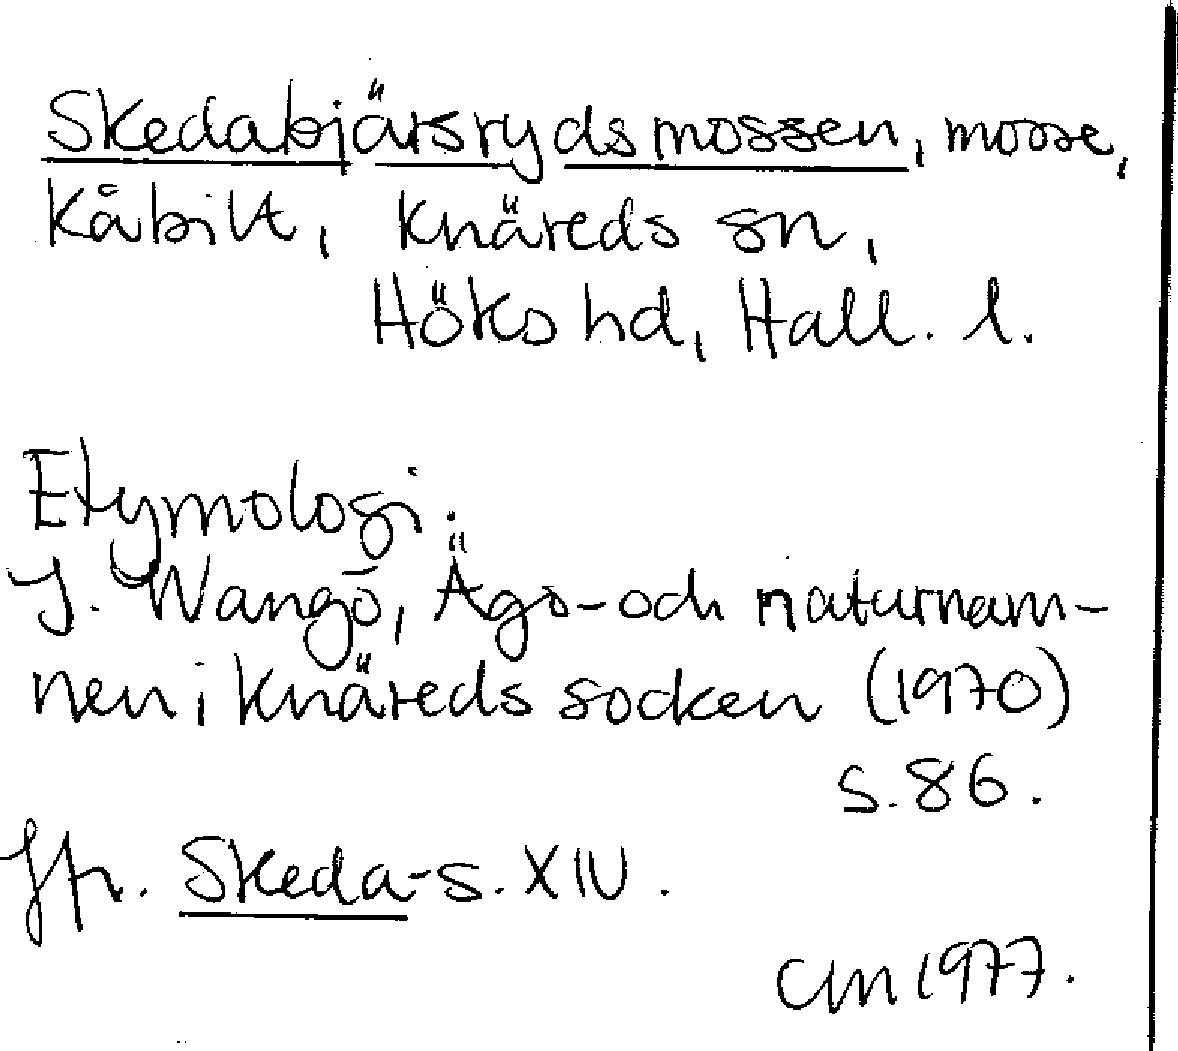 Skedabjärsrydsmossen, mosse,
Kåbilt, Knäreds sn,
Höks hd, Hall. l.
Etymologi.
J. Wangö, Ägo- och naturnam-
nen i Knäreds socken (1970)
s. 86.
Jfr. Skeda- s. XIV.
CM 1977.